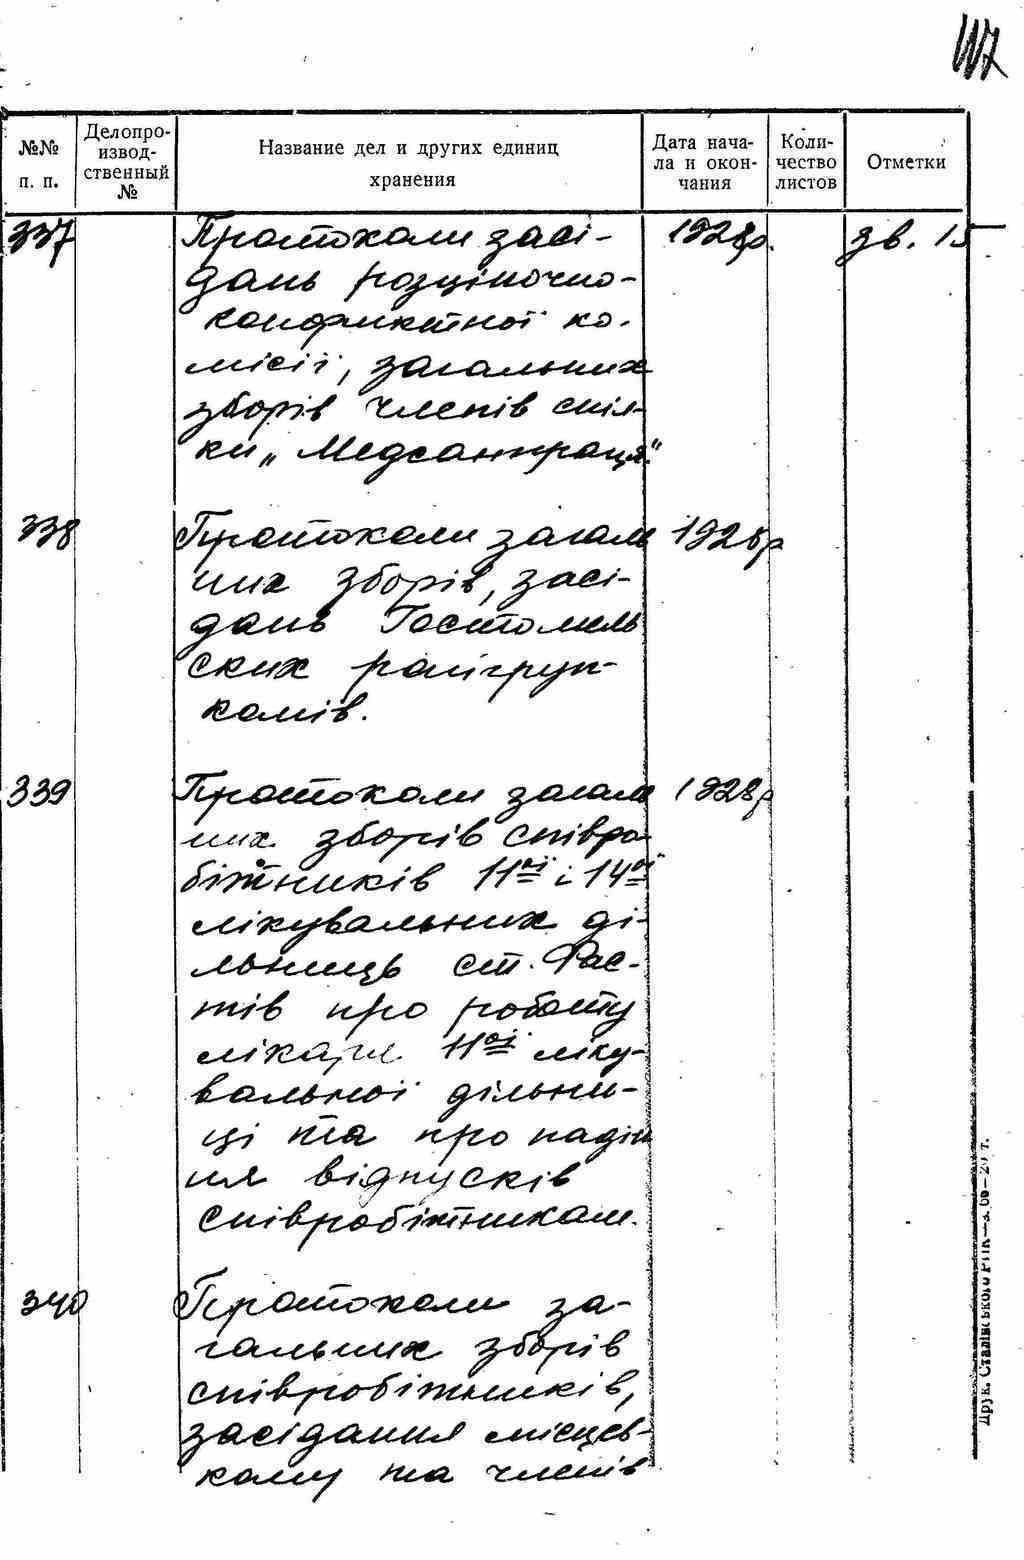 117
№№ п. п.
Делопро-
извод-
ственный
№
Название дел и других единиц
хранения
Дата нача-
ла и окон-
чания
Коли-
чество
листов
Отметки
337 Протоколи засі- 1928р. зв. 15
дань розціночно-
конфліктної ко-
місії, загальних
зборів членів спіл-
ки „Медсанпраця".
338 Протоколи загаль 1928р
них зборів, засі-
дань Гостомель
ских
комів.
339 Протоколи загаль 1928р
них зборів співро-
бітників 11ої і 14ої
лікувальних ді-
льниць ст. Фас-
тів про роботу
лікаря 11ої ліку-
вальної дільни-
ці та про надін
ня відпусків
співробітникам.
340 Протоколи за-
гальних зборів
співробітників,
засідання місцев-
кому та членів
Друк. Сталінського